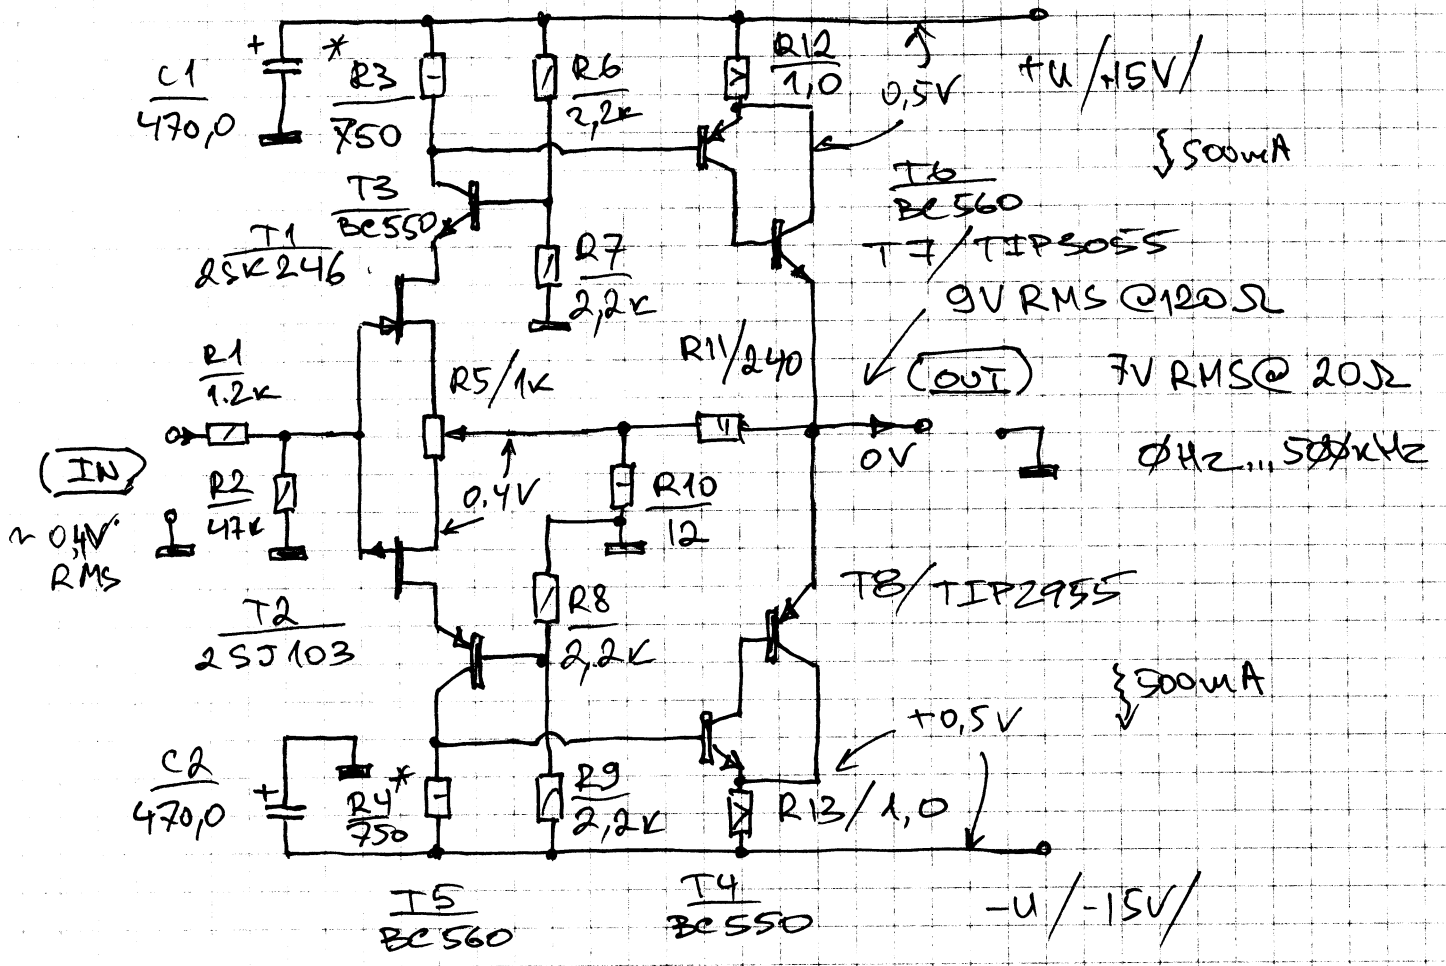 C1
470,0
+
* R3
750
R6
2,2K
R12
1,0
0,5V
+U /+15V/
500mA
T3
BC550
T1
2SK246
R7
2,2K
T6
BC560
T7/TIP3055
9V RMS @120Ω
R11/240
(OUT)
7V RMS@ 20Ω
R1
1.2K
R5/1K
0V
ØHz...500KHz
(IN)
~0,4V
RMS
R2
47K
0,4V
R10
12
T2
2SJ103
R8
2,2K
T8/TIP2955
500mA
+0,5V
C2
470,0
+
R4*
750
R9
2,2K
R13/1,0
T5
BC560
T4
BC550
-U/-15V/